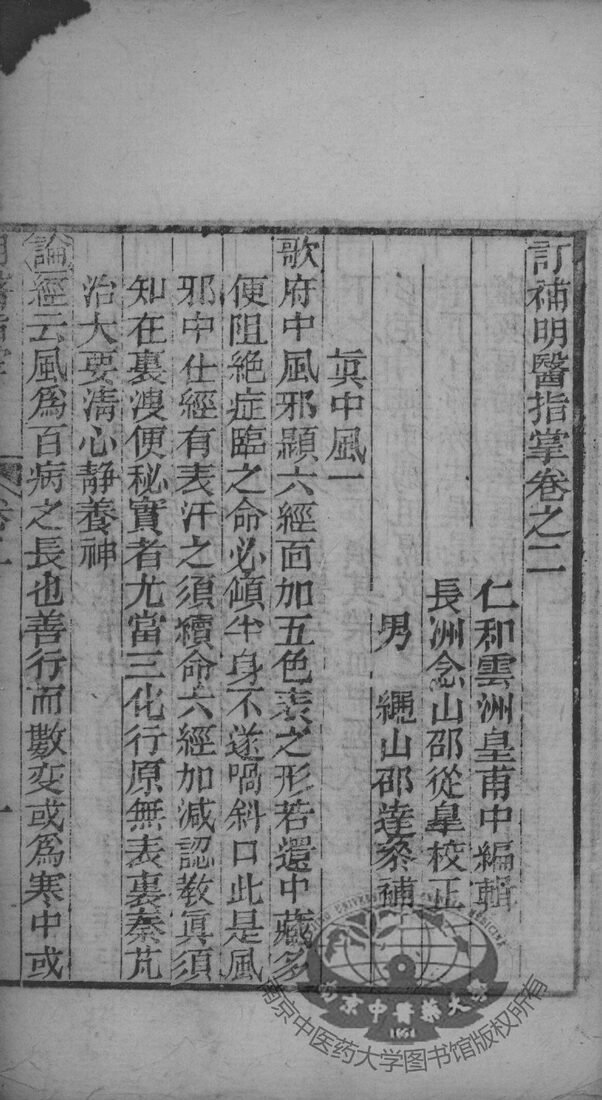 訂補明醫指掌卷之二
仁和雲洲皇甫中編輯
長洲念山邵從皋校正
男 繩山邵達叅補
眞中風一
歌府中風邪顯六經面加五色表之形若還中藏多
便阻絶症臨之命必傾半身不遂喎斜口此是風
邪中仕經有表汗之須續命六經加減認教眞須
知在裏溲便秘實者尤當三化行原無表裏秦艽
治大要清心靜養神
論經云風爲百病之長也善行而數変或爲寒中或
南京中醫藥大學
1954
南京中医药大学图书馆版权所有